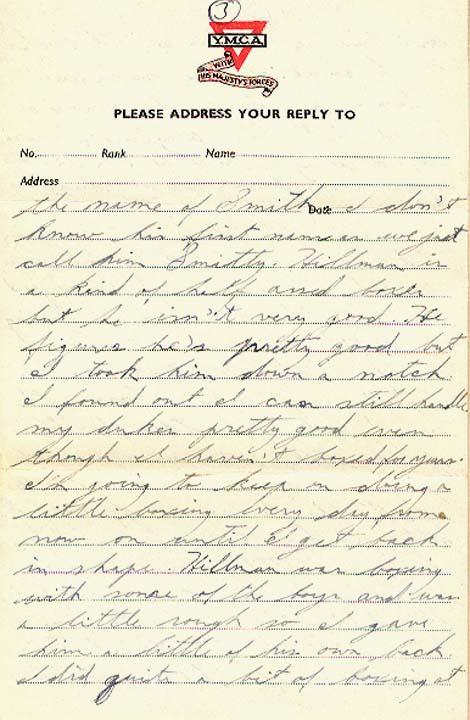 3
Y.M.C.A.
WITH
HIS MAJESTY'S FORCES
PLEASE ADDRESS YOUR REPLY TO
No. Rank Name
Address
Date
the name of Smith I don't
know his first name as we just
call him Smitty. Hillman is
a kind of half assed boxer
but he isn't very good. He
figures he's pretty good but
I took him down a notch.
I found out I can still handle
my dukes pretty good even
though I haven't boxed for years.
I'm going to keep on doing a
little boxing every day from
now on until I get back
in shape. Hillman was boxing
with some of the boys and was
a little rough so I gave
him a little of his own back.
I did quite a bit of boxing at